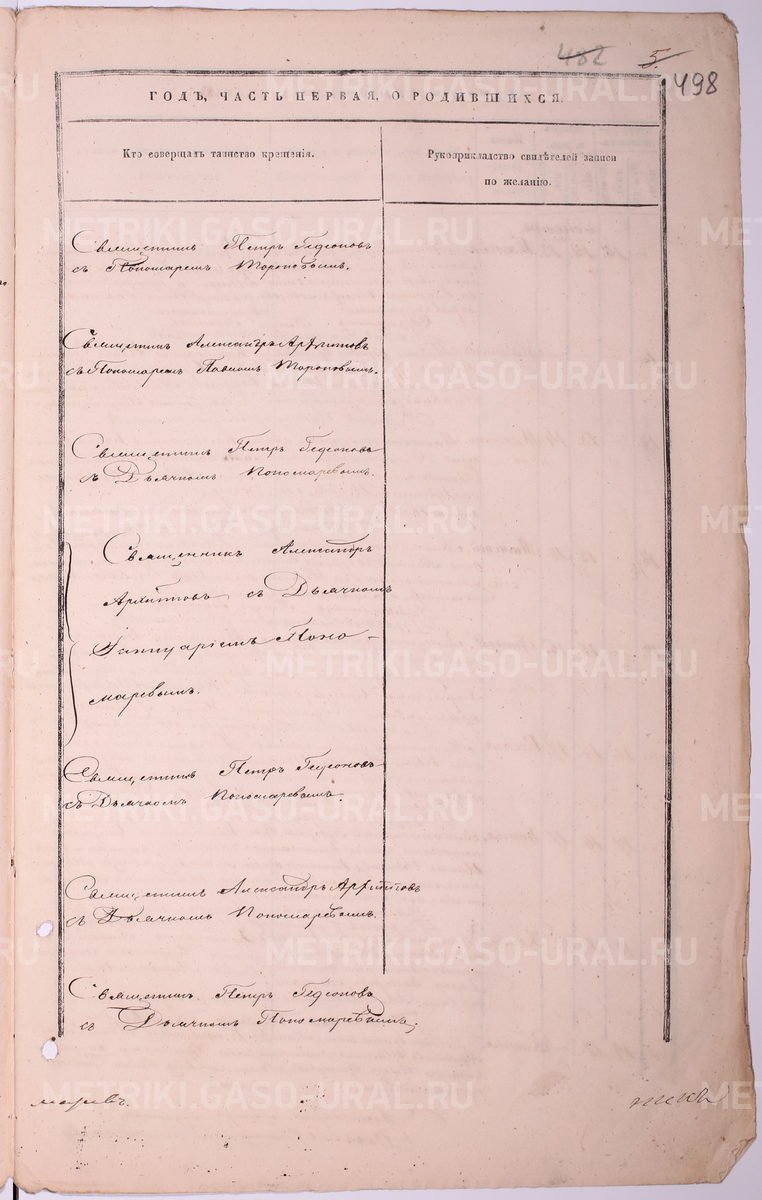 482 5.
498
ГОДЪ, ЧАСТЬ ПЕРВАЯ, О РОДИВШИХСЯ.
Кто совершалъ таинство крещенія.
Рукоприкладство свидѣтелей записи
по желанію.
Священникъ Петръ Гедеоновъ
съ Пономаремъ Тороповымъ.
Священникъ Александръ Архиповъ
съ Пономаремъ Павломъ Тороповымъ.
Священникъ Петръ Гедеоновъ
съ Дьячкомъ Пономаревымъ.
Священникъ Александръ
Архиповъ съ Дьячкомъ
Іаннуаріемъ Поно-
маревымъ.
Священникъ Петръ Гедеоновъ
съ Дьячкомъ Пономаревымъ.
Священникъ Александръ Архиповъ
съ Дьячкомъ Пономаревымъ.
Священникъ Петръ Гедеоновъ
съ Дьячкомъ Пономаревымъ.
METRIKI.GASO-URAL.RU